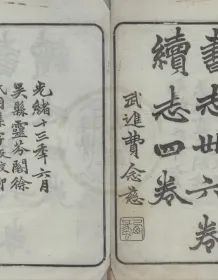 書志卅六卷
續志四卷
武進費念慈
光緒十三年六月
吳縣靈芬閣徐
氏用集字板校印